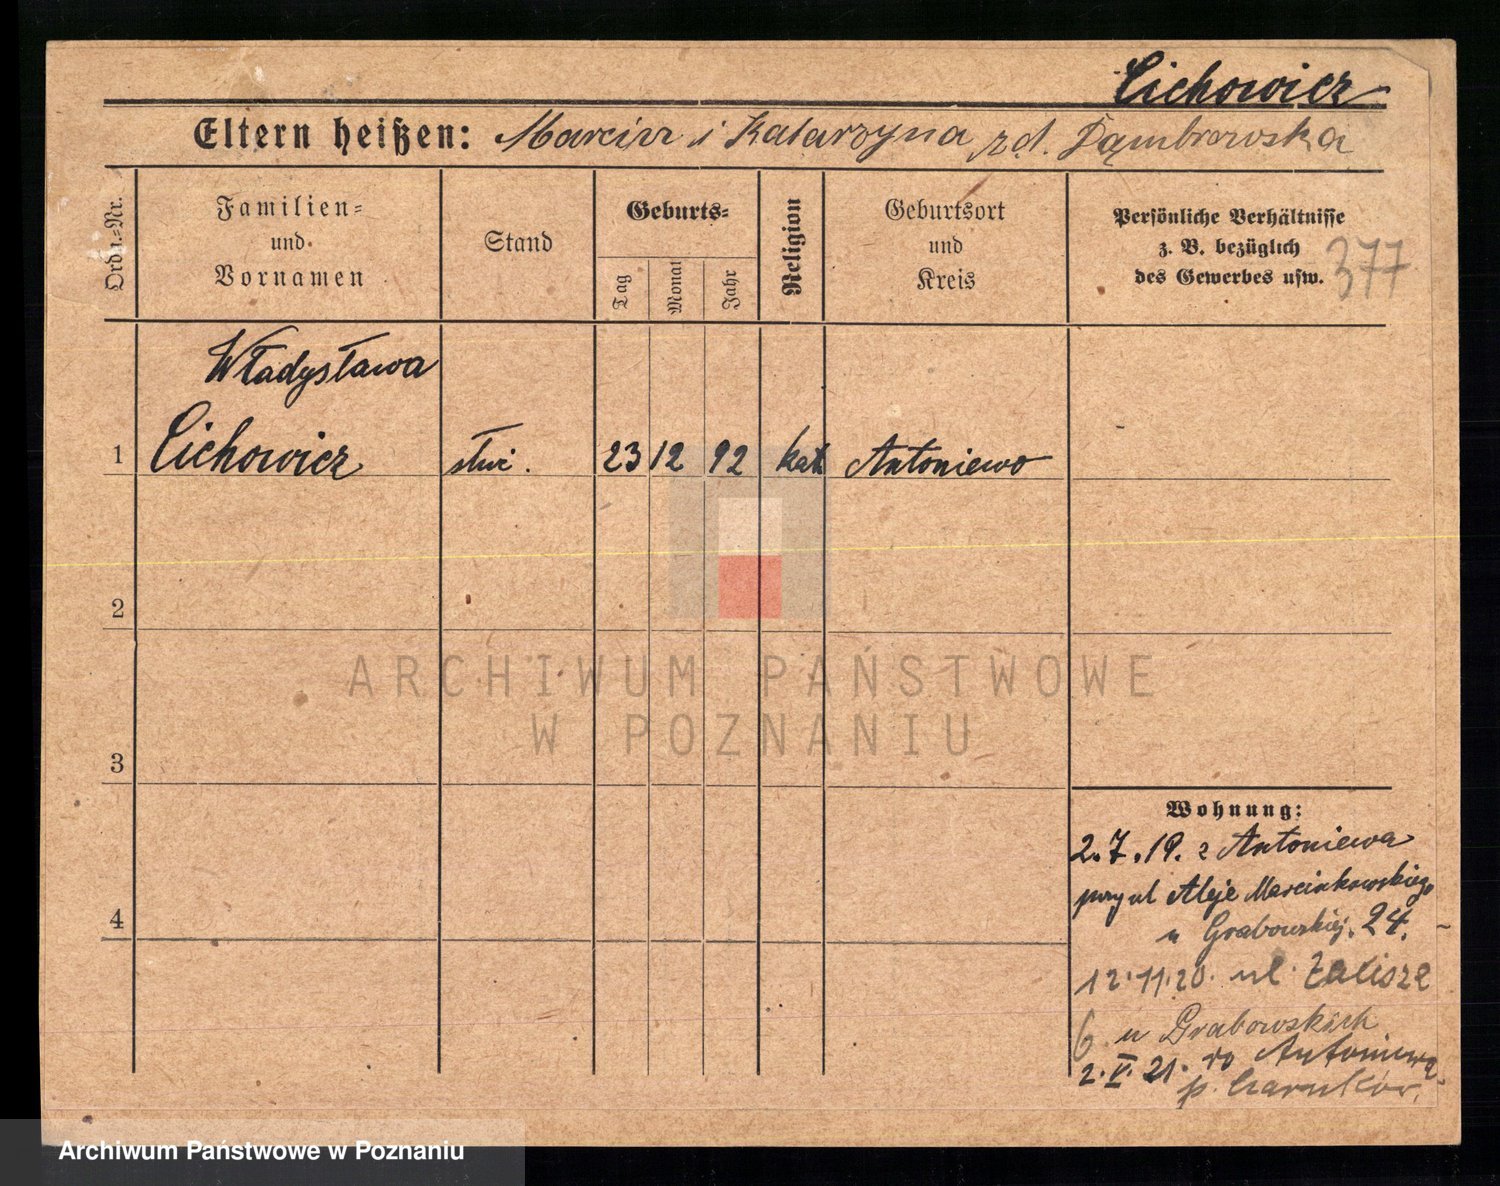 Cichowicz
Eltern heißen: Marcin i Katarzyna zd. Dąmbrowska
Ordn.-Nr.
Familien-
und
Vornamen
Stand
Geburts-
Tag
Monat
Jahr
Religion
Geburtsort
und
Kreis
Persönliche Verhältnisse
z. B. bezüglich
des Gewerbes usw.
377
Władysława
1 Cichowicz służ. 23 12 92 kat Antoniewo
2
3
4
Wohnung:
2.7.19. z Antoniewa
przy ul Aleje Marcinkowskiego
u Grabowskiej. 24.
12.11.20. ul. Zacisze
6 u Grabowskich
2.V.21. do Antoniewa
p. Czarnków.
ARCHIWUM PAŃSTWOWE
W POZNANIU
Archiwum Państwowe w Poznaniu